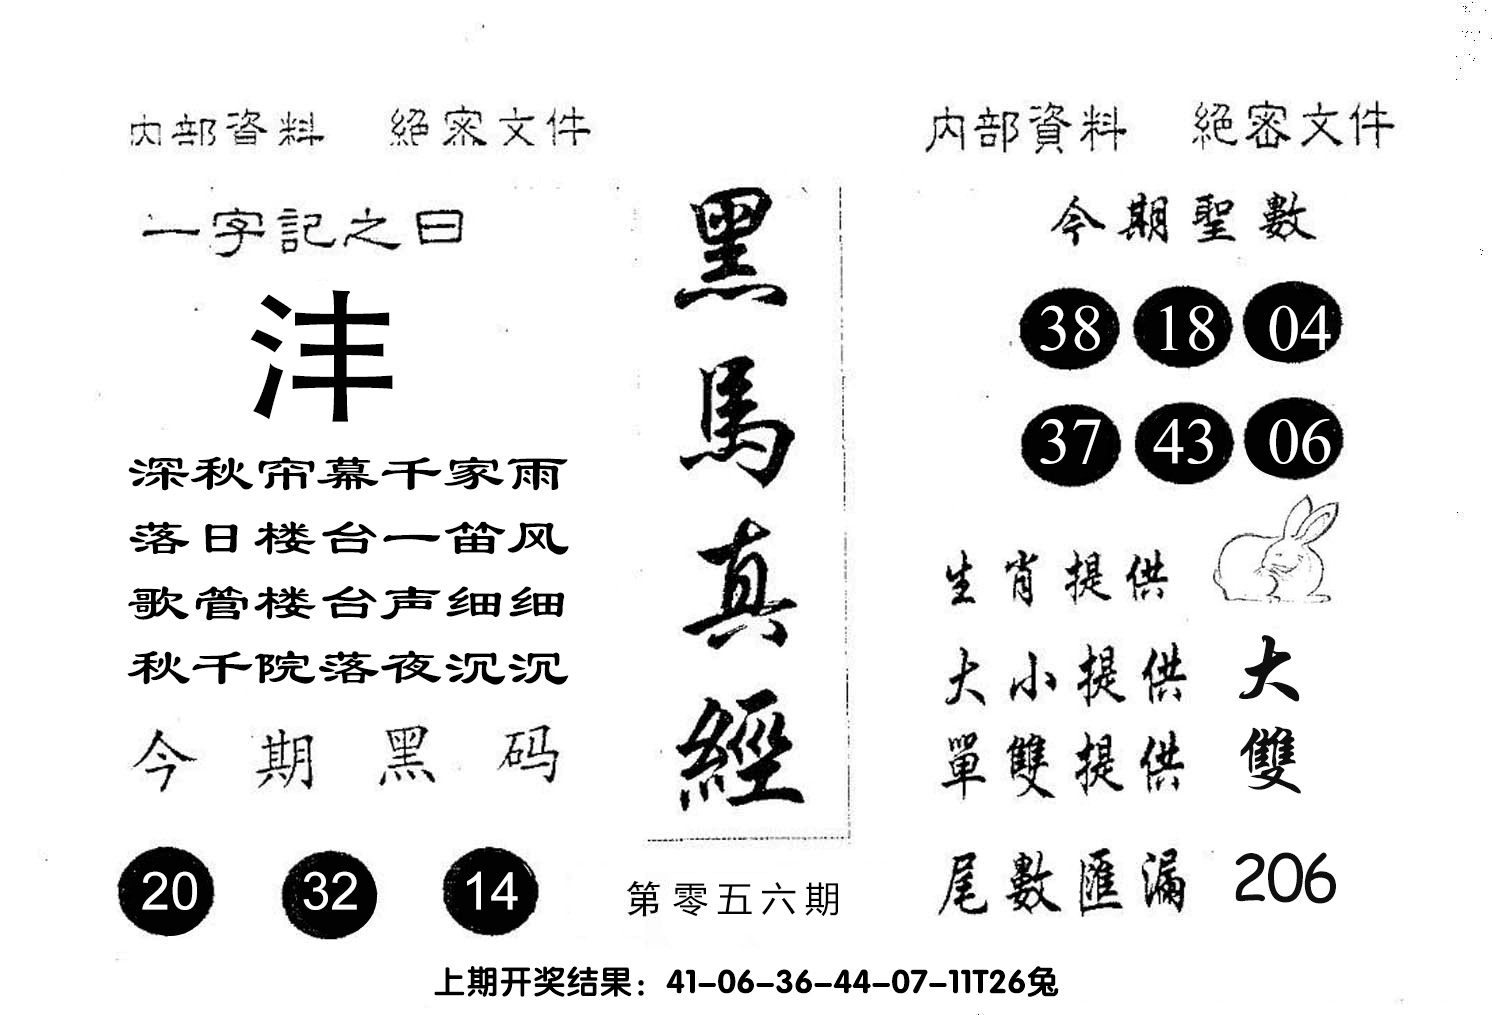 内部資料 絕密文件
一字記之曰
沣
深秋帘幕千家雨
落日楼台一笛风
歌管楼台声细细
秋千院落夜沉沉
今期黑码
20 32 14
黑馬真經
第零五六期
内部資料 絕密文件
今期聖數
38 18 04
37 43 06
生肖提供
大小提供 大
單雙提供 雙
尾數匯漏 206
上期开奖结果：41-06-36-44-07-11T26兔